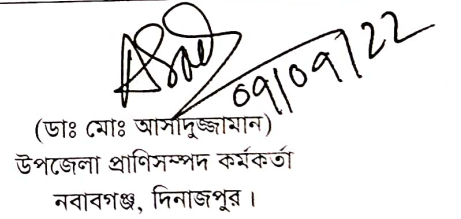 09/09/22
(ডাঃ মোঃ আসাদুজ্জামান)
উপজেলা প্রাণিসম্পদ কর্মকর্তা
নবাবগঞ্জ, দিনাজপুর ।